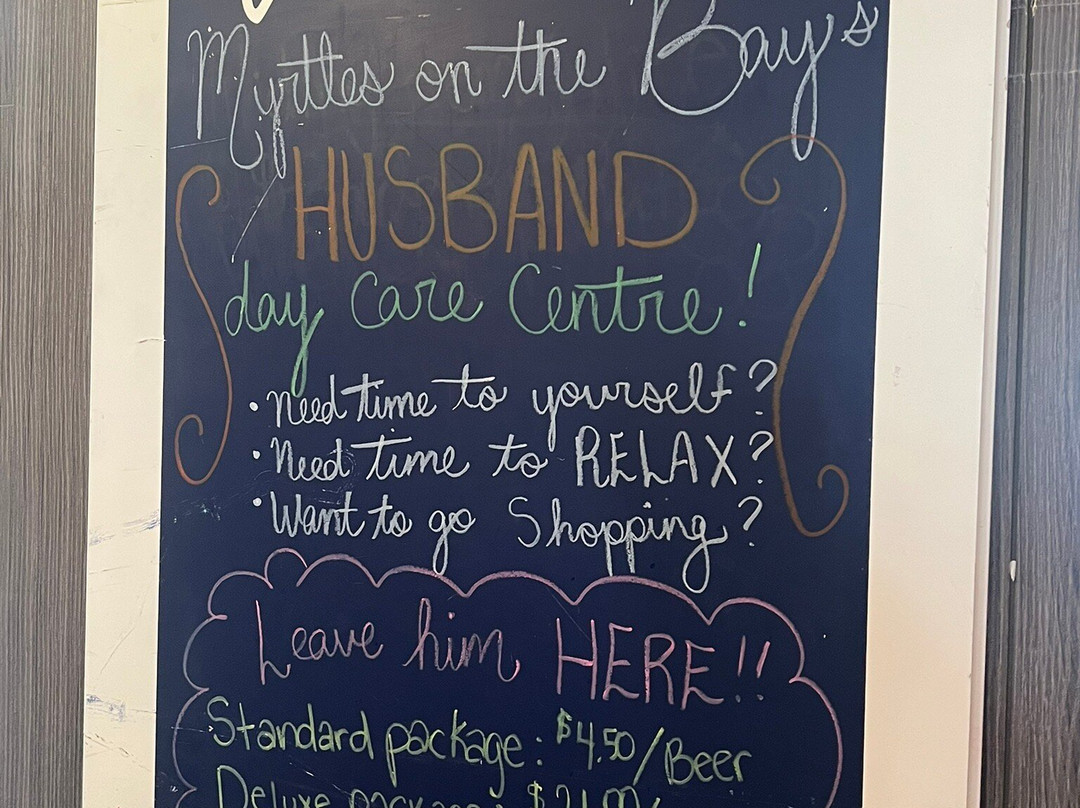 Myrtles on the Bay's
HUSBAND
day Care Centre!
• Need time to yourself?
• Need time to RELAX?
• Want to go Shopping?
Leave him HERE!!
Standard package: $4.50/Beer
Deluxe package: